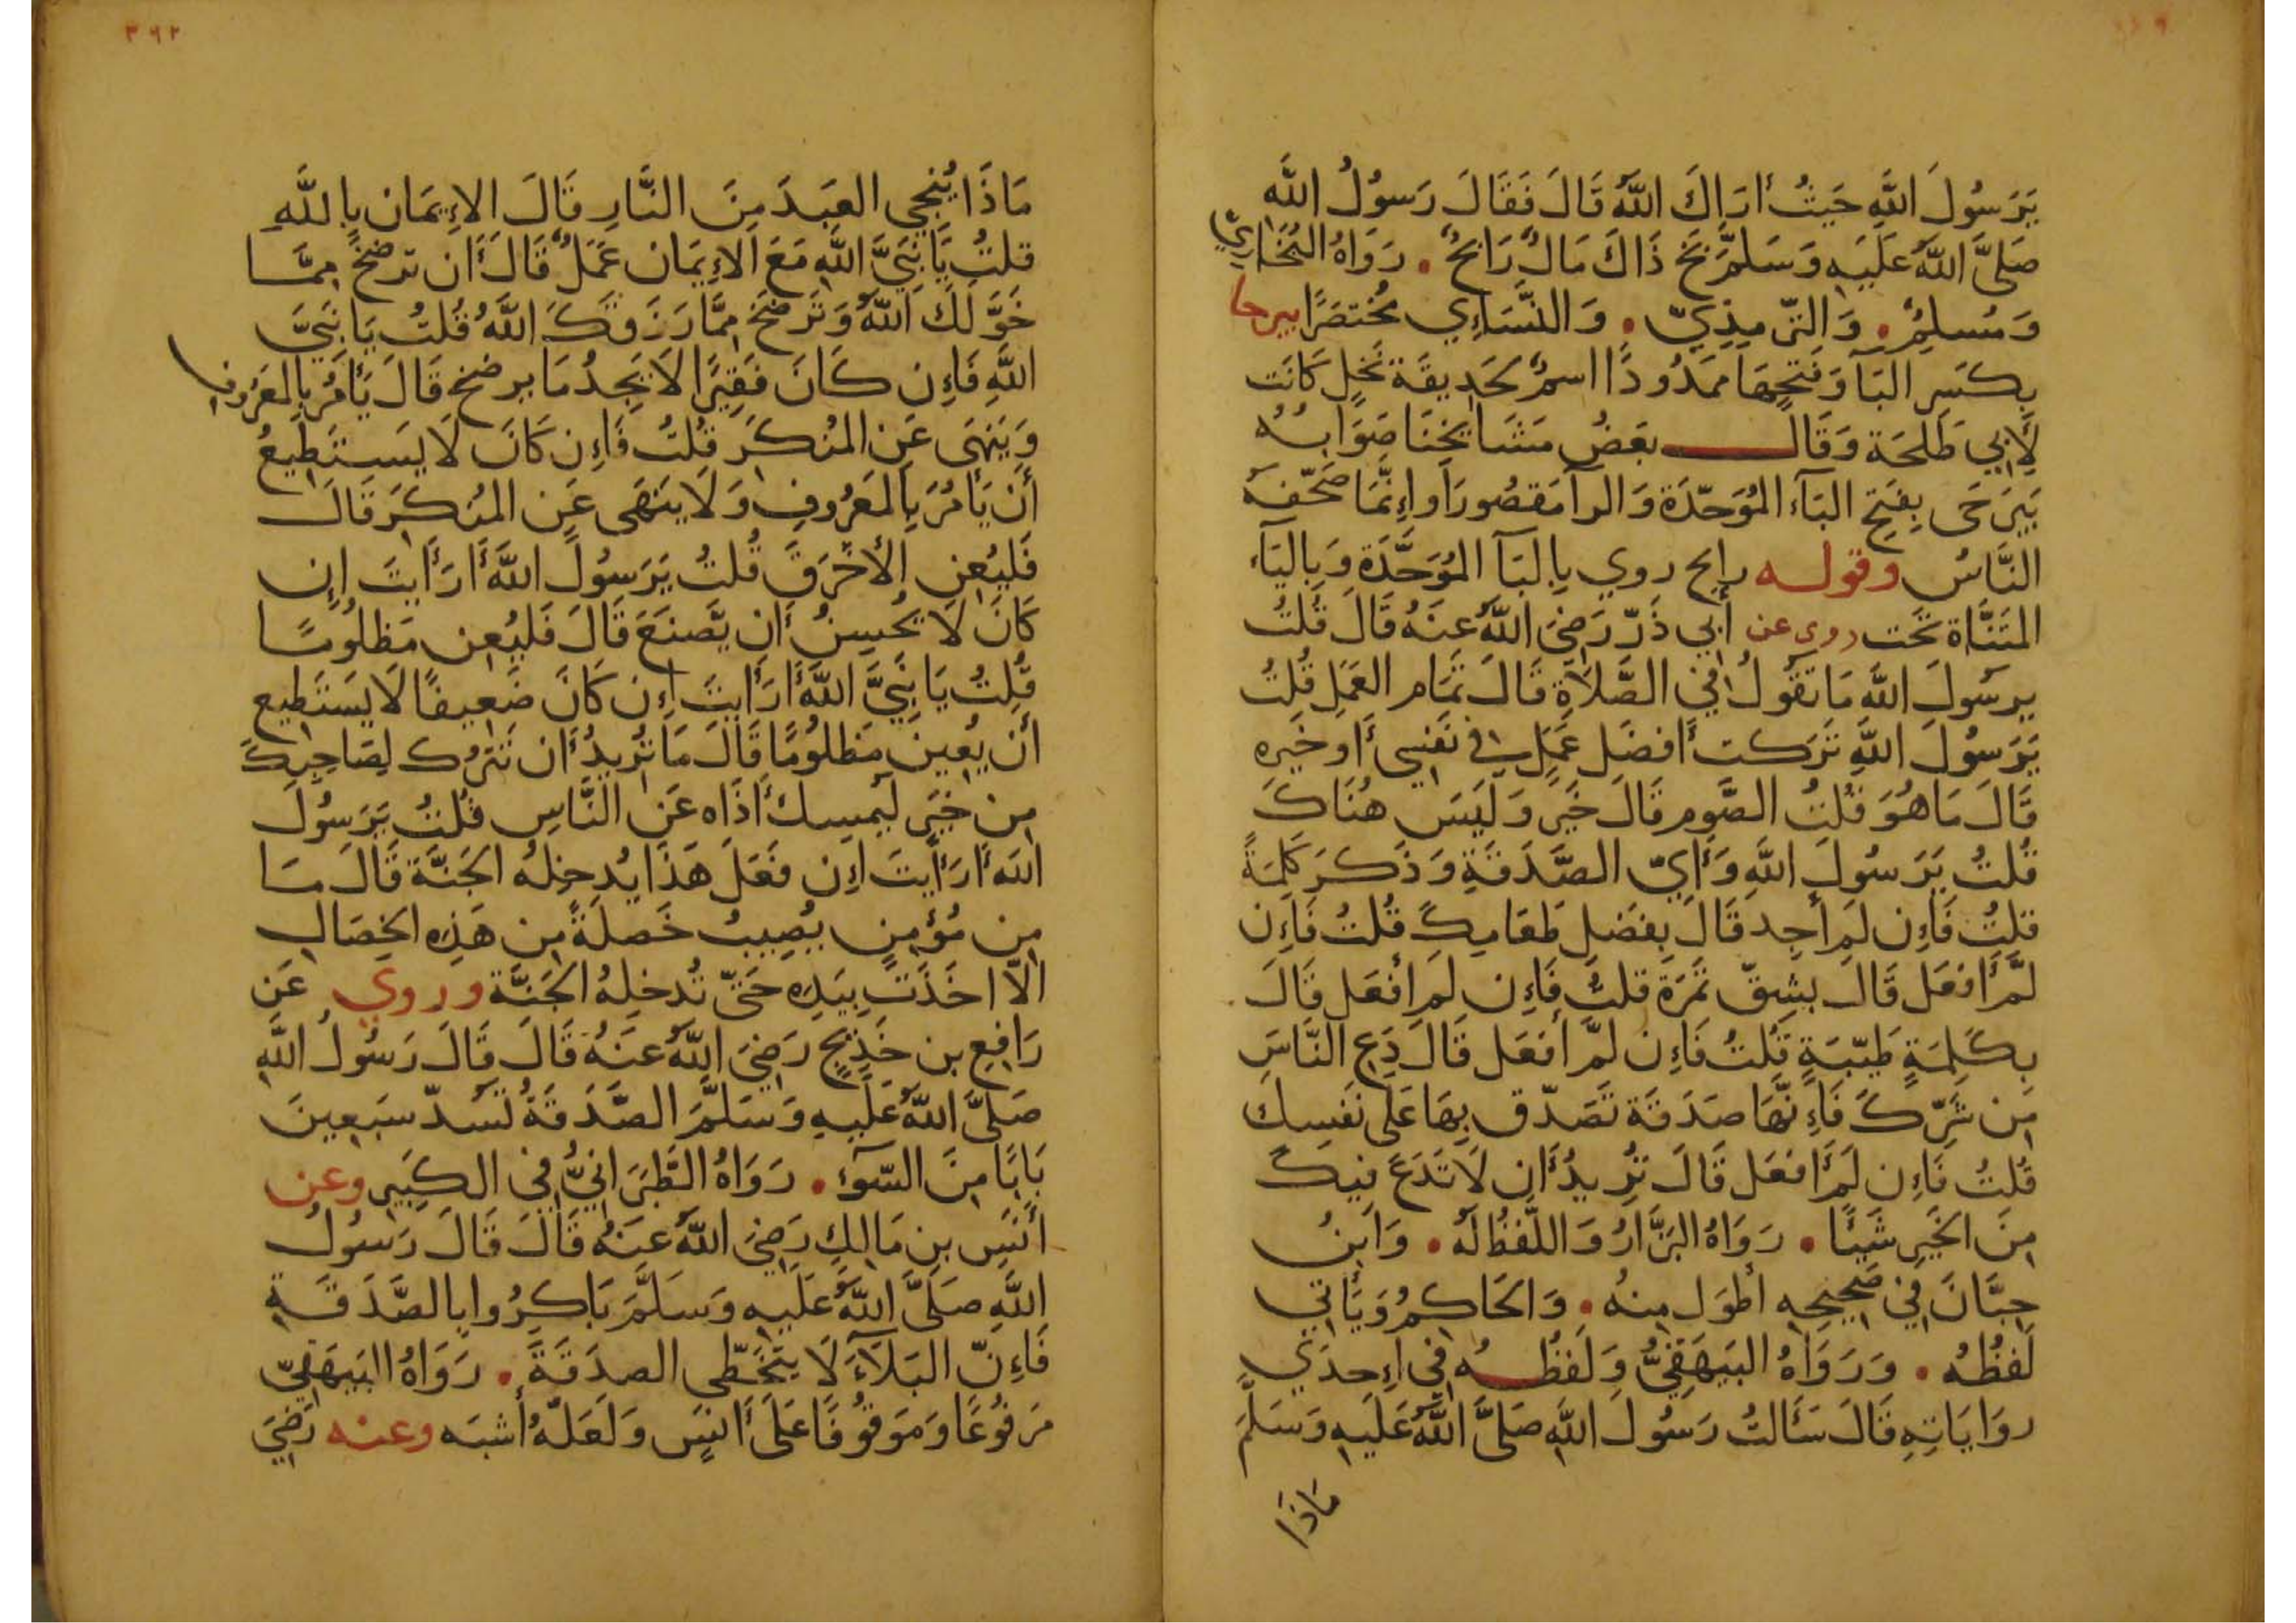 يَرَسُولَ اللَّهِ حَيثُ أَرَاكَ اللَّهُ قَالَ فَقَالَ رَسُولُ اللَّهِ
صَلَّى اللَّهُ عَلَيهِ وَسَلَّمَ بَخ ذَاكَ مَالٌ رَابحٌ . رَوَاهُ البُخَارِيّ
وَمُسلِمٌ . وَالتّرمِذِيّ . وَالنَّسَاءِي مُختَصَرًا بيرحا
بِكَسرِ البَآ وَفَتحِهَا مَمدُودًا اسمٌ لحَدِيقَة نَخلٍ كَانَت
لِأَبِي طَلحَة وَقَال بَعَضُ مَشَايخِنَا صَوَابُهُ
بَيرَحَى بِفَتحِ البَآءِ المُوَحّدَة وَالرآ مَقصُورًا وإِنَّمَا صَحّفَهُ
النَّاسُ وقوله رابح روي بِالبَآ المُوَحَّدَة وَبِاليَآءِ
المثَنَّاة تَحت روى عن أَبي ذَرّ رَضِيَ اللَّهُ عَنهُ قَالَ قُلتُ
يرسُولَ اللَّهِ مَا تَقُولُ في الصَّلَاةِ قَالَ تَمَام العَمَلِ قُلتُ
يَرَسُولَ اللَّهِ تَرَكت أَفضَل عَمَلٍ في نَفسِي أَو خَيره
قَالَ مَا هُوَ قُلتُ الصَّوم قَالَ خَير وَلَيسَ هُنَاكَ
قُلتُ يَرَسُولَ اللَّهِ وَأَيّ الصَّدَقَةِ وَذَكَرَ كَلِمَةً
قلتُ فَإِن لَم أَجِد قَالَ بِفَضلِ طَعَامِكَ قُلتُ فَإِن
لَّم أَفعَل قَالَ بِشِقّ تَمرَة قلتُ فَإِن لَم أَفعَل قَالَ
بِكَلِمَةٍ طَيّبَةٍ قُلتُ فَإِن لَّم أَفعَل قَالَ دَعِ النَّاسَ
مِن شَرِّكَ فَإِنّهَا صَدَقَة تَصَدّق بِهَا عَلَى نَفسِكَ
قُلتُ فَإِن لَم أَفعَل قَالَ تُرِيدُ أَن لَا تَدَعَ فِيكَ
مِنَ الخَيرِ شَيئًا . رَوَاهُ البَزَّارُ وَاللَّفظُ لَهُ . وَابنُ
حِبَّانَ في صَحِيحِهِ أَطوَل مِنهُ . وَالحَاكِمُ وَيَأتي
لَفظُهُ . وَرَوَاهُ البَيهَقِيُّ وَلَفظُهُ في إِحدَي
روَايَاتِهِ قَالَ سَأَلتُ رَسُولَ اللَّهِ صَلَّى اللَّهُ عَلَيهِ وَسَلَّمَ
مَاذَا
٣٩٢
مَاذَا يُنجِي العَبدَ مِنَ النَّارِ قَالَ الإِيمَان بِاللَّهِ
قلتُ يَا نَبِيَّ اللَّهِ مَعَ الإِيمَان عَمَلٌ قَالَ أَن ترضخ مِمَّا
خَوَّلَكَ اللَّهُ وَتَرضَخَ مِمَّا رَزَقَكَ اللَّهُ قُلتُ يَا نَبِيَّ
اللَّهِ فَإِن كَانَ فَقِيرًا لَا يَجِدُ مَا يرضخ قَالَ يَأمُر بِالمَعرُوفِ
وَيَنهَى عَنِ المُنكَرِ قُلتُ فَإِن كَانَ لَا يَستَطِيعُ
أَن يَأمُرَ بِالمَعرُوفِ وَلَا يَنهَى عَنِ المُنكَرِ قَالَ
فَليُعِنِ الأَخرَقَ قُلتُ يَرَسُولَ اللَّهِ أَرَأَيتَ إِن
كَانَ لَا يُحسِنُ أَن يَّصنَعَ قَالَ فَليُعِن مَظلُومًا
قُلتُ يَا نَبِيَّ اللَّهِ أَرَأَيتَ إِن كَانَ ضَعِيفًا لَا يَستَطِيع
أَن يُعِين مَظلُومًا قَالَ مَا تُرِيدُ أَن تَترُك لِصَاحِبِكَ
مِن خَيرٍ لِيُمسِك أَذَاه عَنِ النَّاسِ قُلتُ يَرَسُولَ
اللَّه أَرَأَيتَ إِن فَعَلَ هَذَا يُدخِلهُ الجَنَّة قَالَ مَا
مِن مُؤمِنٍ يُصِيبُ خَصلَةً مِن هَذِهِ الخِصَالِ
الّا أَخَذَت بِيَدِهِ حَتّى تُدخِلهُ الجَنَّة وروي عَن
رَافِعِ بن خَدِيجٍ رَضِيَ اللَّهُ عَنهُ قَالَ قَالَ رَسُولُ اللَّهِ
صَلَّى اللَّهُ عَلَيهِ وَسَلَّمَ الصَّدَقَةُ تَسُدّ سَبعِينَ
بَابًا مِنَ السّوٓءِ . رَوَاهُ الطَّبَرَانِيُّ فِي الكَبِيرِ وعن
أَنَسِ بنِ مَالِكٍ رَضِيَ اللَّهُ عَنهُ قَالَ قَالَ رَسُولُ
اللَّهِ صَلَّى اللَّهُ عَلَيهِ وَسَلَّمَ بَاكِرُوا بِالصَّدَقَةِ
فَإِنّ البَلَآءَ لَا يَتَخَطّى الصدَقَةَ . رَوَاهُ البَيهَقِيّ
مَرفُوعًا وَمَوقُوفًا عَلَى أَنَسٍ وَلَعَلّهُ أَشبَه وعنه رَضِيَ